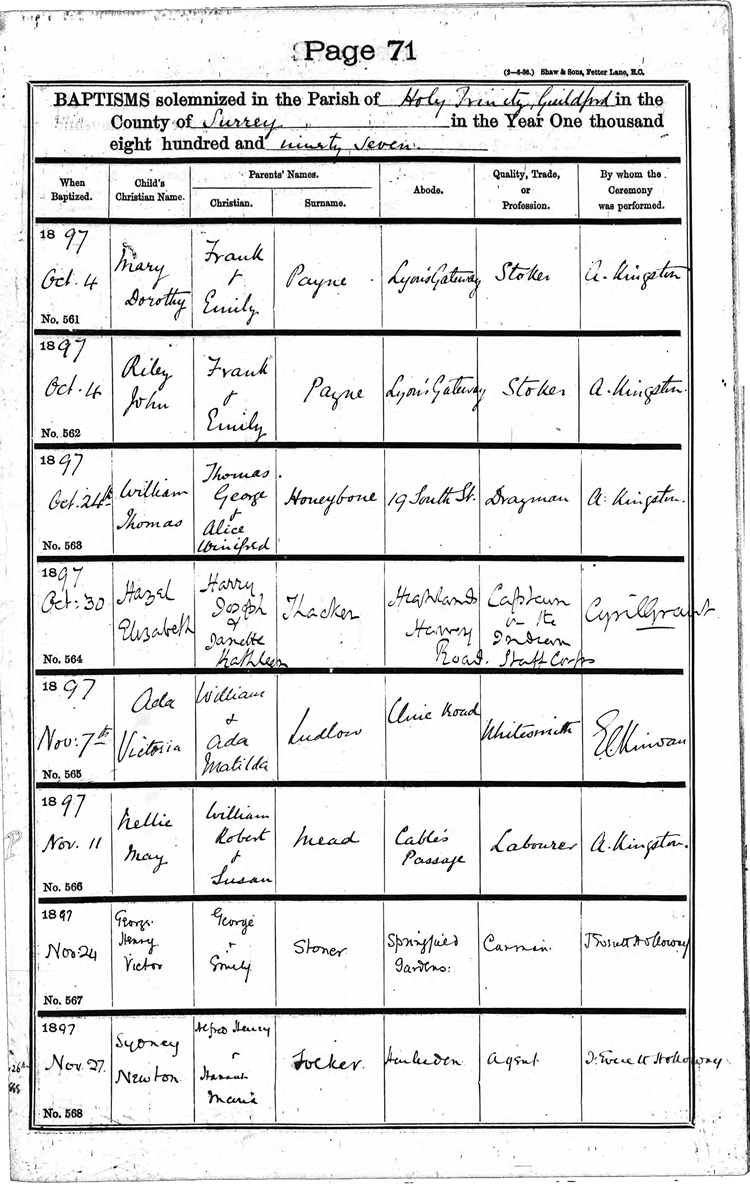 Page 71
(2—6-86.) Shaw & Sons, Fetter Lane, E.C.
BAPTISMS solemnized in the Parish of Holy Trinity, Guildford in the
County of Surrey in the Year One thousand
eight hundred and ninety seven.
When Baptized. Child's Christian Name. Parents' Names. Abode. Quality, Trade, or Profession. By whom the Ceremony was performed.
Christian. Surname.
1897
Oct. 4 Mary Dorothy Frank & Emily Payne Lyon's Gateway Stoker A. Kingston
No. 561
1897
Oct. 4 Riley John Frank & Emily Payne Lyon's Gateway Stoker A. Kingston.
No. 562
1897
Oct. 24th William Thomas Thomas George & Alice Winifred Honeybone 19 South St. Drayman A. Kingston.
No. 563
1897
Oct. 30 Hazel Elizabeth Harry Joseph & Janette Kathleen Thacker Highlands Harvey Road. Captain in the Indian Staff Corps Cyril Grant
No. 564
1897
Nov: 7th Ada Victoria William & Ada Matilda Ludlow Road Whitesmith
No. 565
1897
Nov. 11 Nellie May William Robert & Susan Mead Cable's Passage Labourer A. Kingston.
No. 566
1897
Nov 24 George Henry Victor George & Emily Stoner Springfield Gardens: Carman. Holloway
No. 567
1897
Nov. 27. Sydney Newton Alfred Henry & Hannah Maria Agent J. Everett Holloway
No. 568